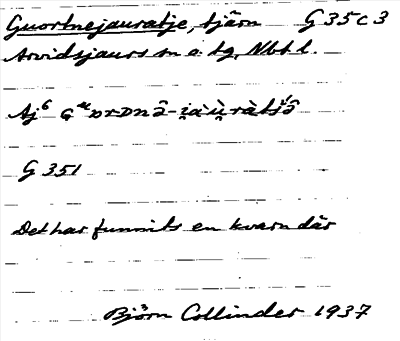 Guortnejauratje, tjärn G 35 c 3
Arvidsjaurs sn o. tg, Nbt l.
Aj⁶
G 351
Det har funnits en kvarn där
Björn Collinder 1937